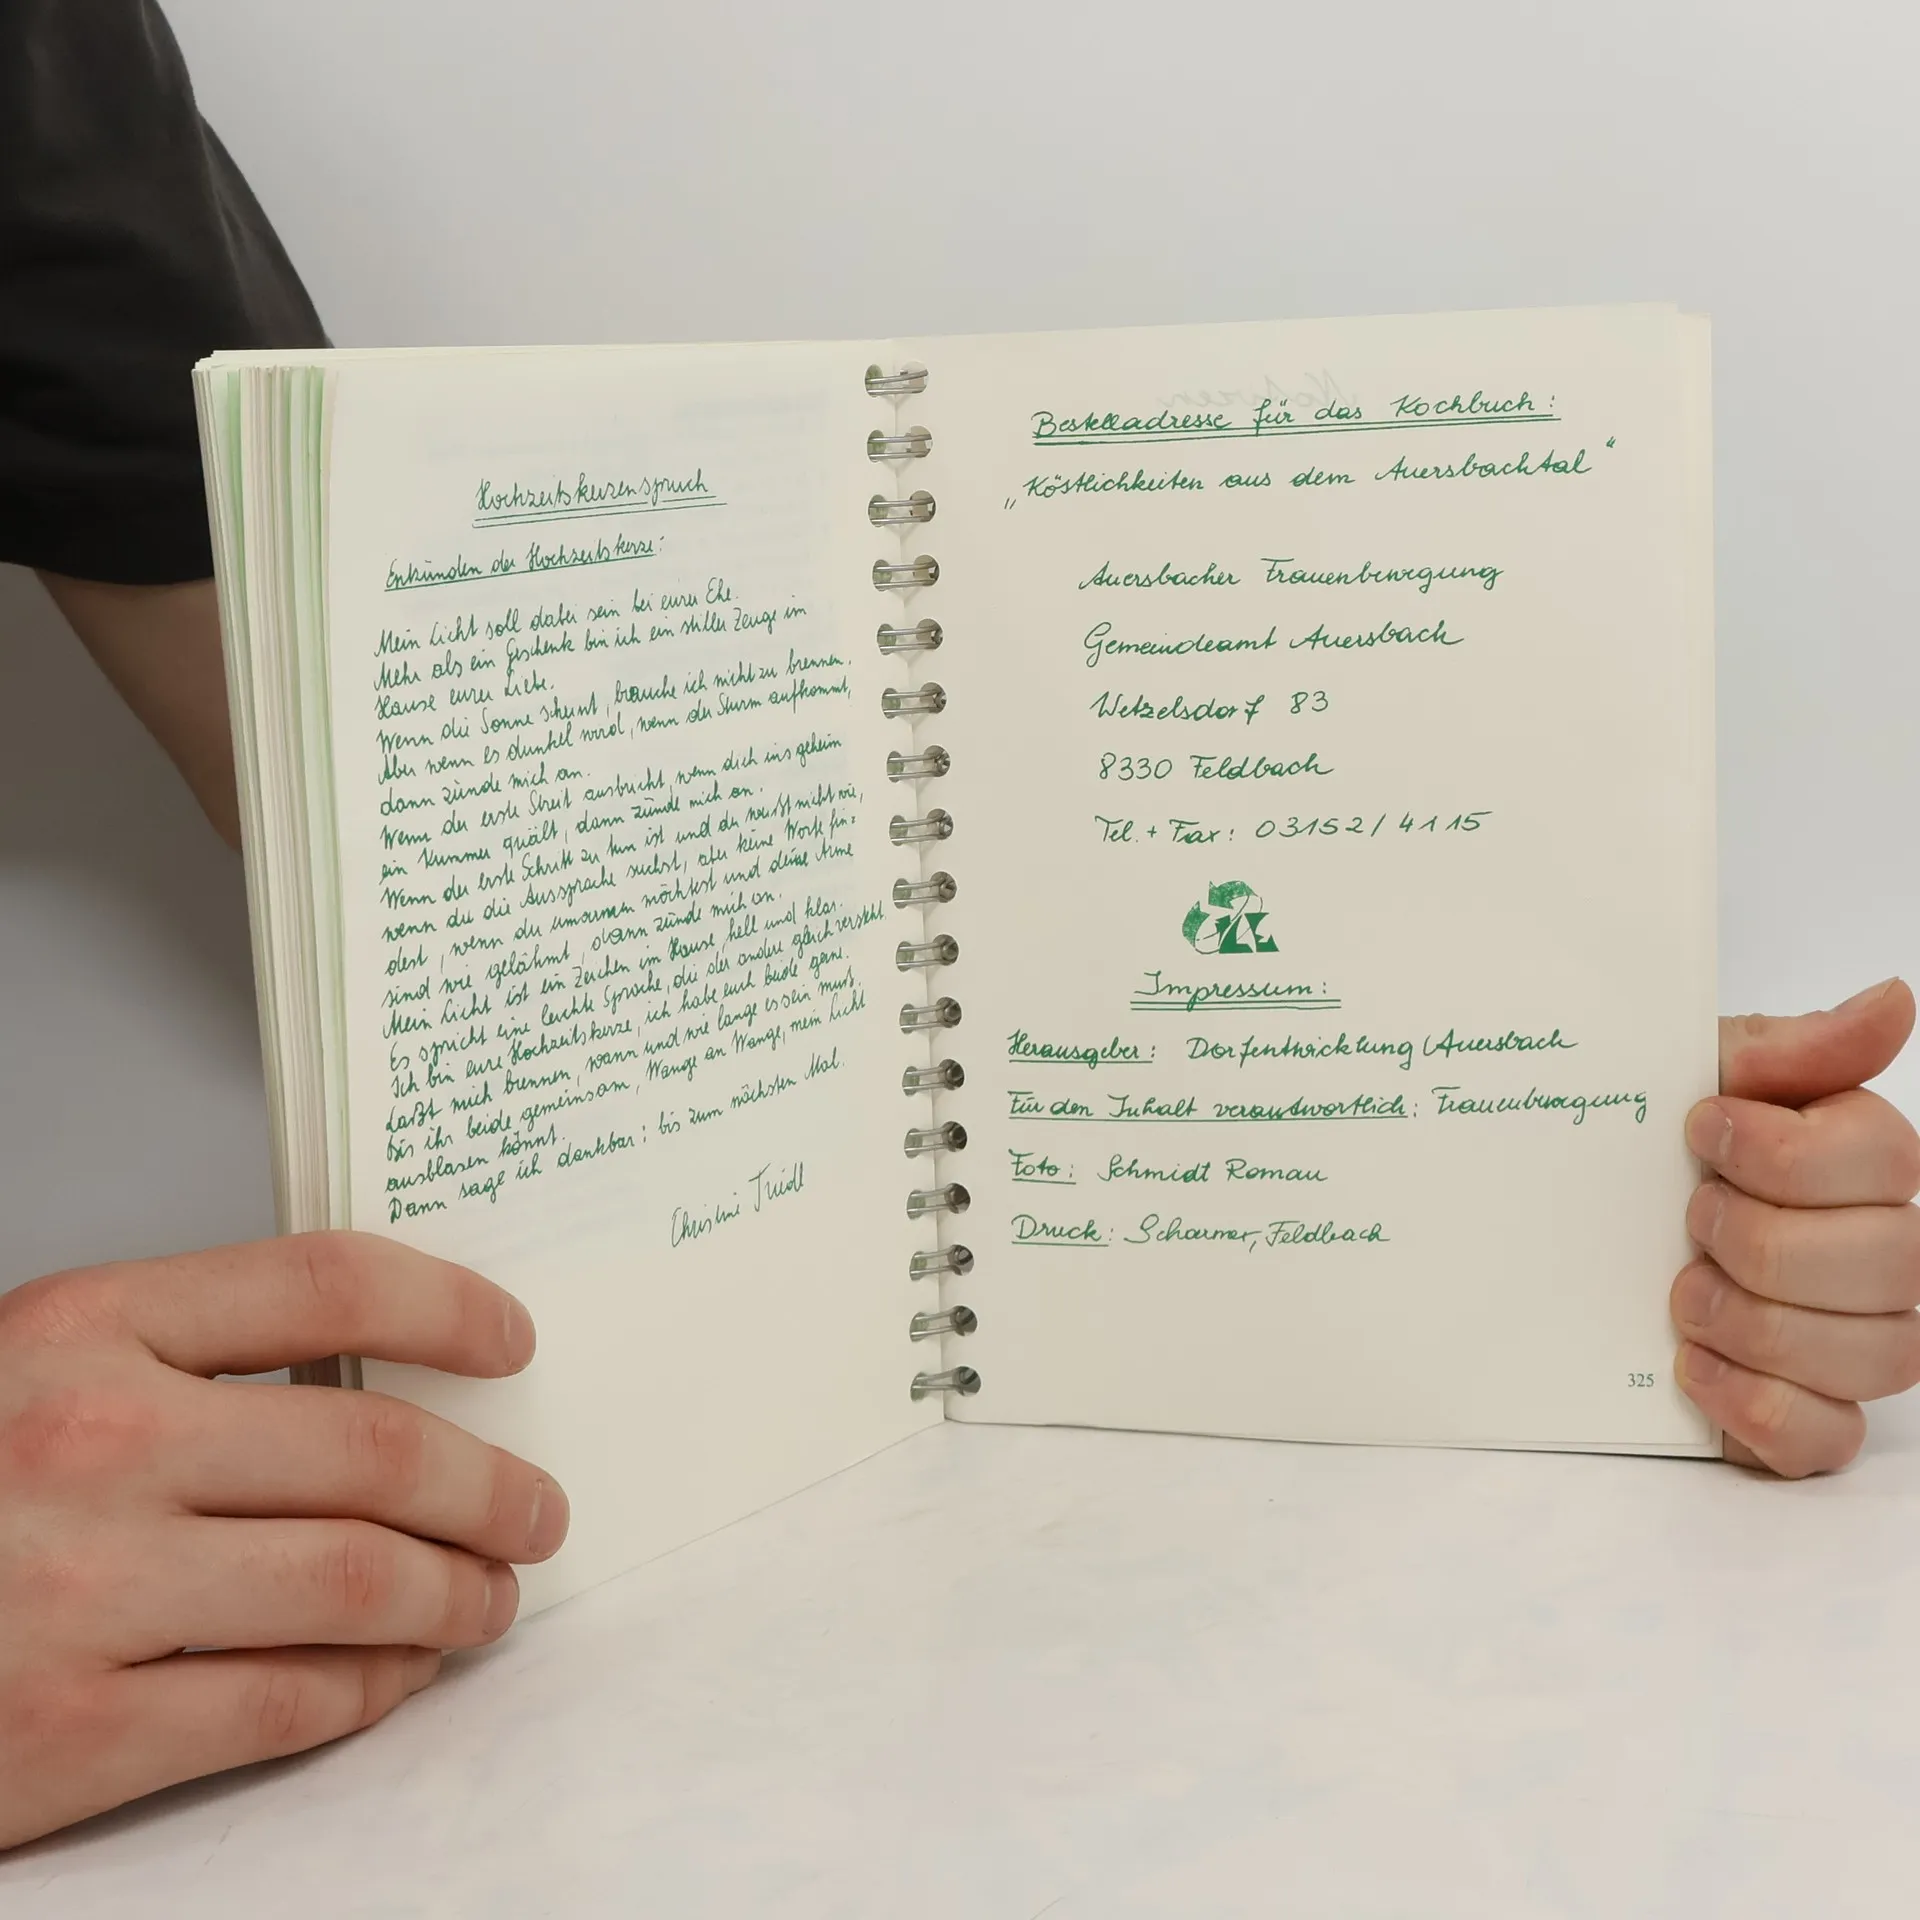 Hochzeitskerzenspruch
Entzünden der Hochzeitskerze:
Mein Licht soll dabei sein bei eurer Ehe.
Mehr als ein Geschenk bin ich ein stiller Zeuge im
Hause eurer Liebe.
Wenn die Sonne scheint, brauche ich nicht zu brennen.
Aber wenn es dunkel wird, wenn der Sturm aufkommt,
dann zünde mich an.
Wenn der erste Streit ausbricht, wenn dich insgeheim
ein Kummer quält, dann zünde mich an.
Wenn der erste Schritt zu tun ist und du weißt nicht wie,
wenn du die Aussprache suchst, aber keine Worte fin=
dest, wenn du umarmen möchtest und deine Arme
sind wie gelähmt, dann zünde mich an.
Mein Licht ist ein Zeichen im Hause, hell und klar.
Es spricht eine leichte Sprache, die der andere gleich versteht.
Ich bin eure Hochzeitskerze, ich habe euch beide gerne.
Laßt mich brennen, wann und wie lange es sein muß.
Bis ihr beide gemeinsam, Wange an Wange, mein Licht
ausblasen könnt.
Dann sage ich dankbar: bis zum nächsten Mal.
Christine Triedl
Bestelladresse für das Kochbuch:
„Köstlichkeiten aus dem Auersbachtal“
Auersbacher Frauenbewegung
Gemeindeamt Auersbach
Wetzelsdorf 83
8330 Feldbach
Tel. + Fax: 03152/4115
Impressum:
Herausgeber: Dorfentwicklung Auersbach
Für den Inhalt verantwortlich: Frauenbewegung
Foto: Schmidt Roman
Druck: Scharmer, Feldbach
325